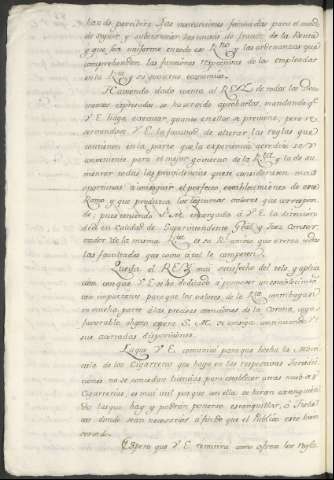 las instrucciones formadas para el modo
de seguir y substanciar las causas de fraude de la Renta
y que son uniforme exsedo en Rno y las ordenanzas que
comprehenden las funciones respectivas de los empleados
en la Rta y su govierno economico.
Haviendo dado cuenta al REY de todas las Ins
trucciones expresadas se ha servido aprobarlas, mandando qe
V E haga executar quanto en ellas se previene, pero re
servandose a V E la facultad de alterar las reglas que
contienen en la parte que la experiencia acredite ser
conveniente para el mejor govierno de la Rta y la de su
ministrar todas las providencias que se consideren mas
oportunas a conseguir el perfecto establecimiento de este
Ramo y que produzca los legitimos valores que correspon
de; pues teniendo S M encargado a V E la direccion
de el en Calidad de Superintendente Gral y Juez Conser
vador de la misma Rta es su Rl animo que exerza todas
las facultades que como a tal le competen.
Queda el REY mui satisfecho del zelo y aplica
cion con que V E se ha dedicado a promover un establecimto
tan importante para que los valores de la Rta contribuyan
en mucha parte a las precisas atenciones de la Corona, cuyo
favorable objeto espera S. M. se consiga continuando V E
sus acertadas disposiciones.
Lo que V E comunico para que hecha la Matri
cula de los Cigarreros que haya en las respectivas Jurisdic
ciones no se concedan licencias para establecer otras nuebas
Cigarrerias, es mui util porque con ella se iran extinguien
do las que hay y podran ponerse estanquillos, ó Fieles
en donde sean necesarios a fin de que el Publico este bien
servido.
Espero que V E remitira como ofrece las regla